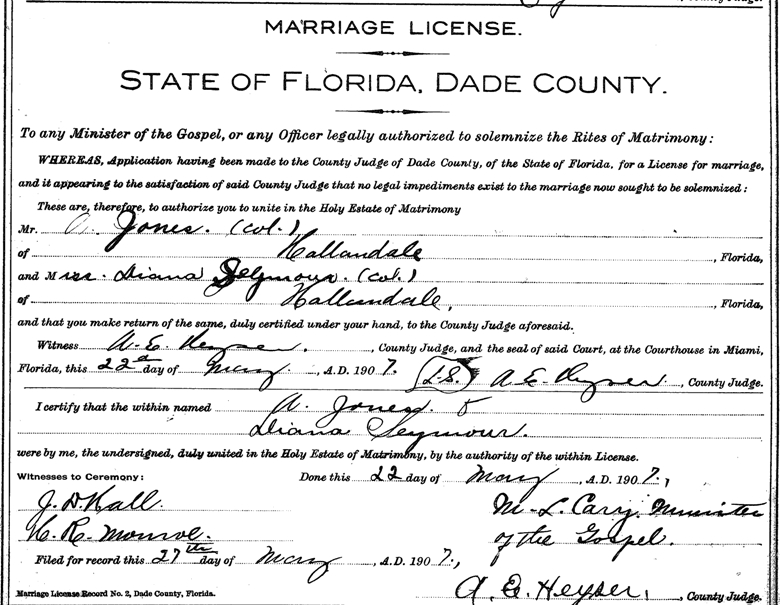 County Judge.
MARRIAGE LICENSE.
STATE OF FLORIDA, DADE COUNTY.
To any Minister of the Gospel, or any Officer legally authorized to solemnize the Rites of Matrimony:
WHEREAS, Application having been made to the County Judge of Dade County, of the State of Florida, for a License for marriage,
and it appearing to the satisfaction of said County Judge that no legal impediments exist to the marriage now sought to be solemnized:
These are, therefore, to authorize you to unite in the Holy Estate of Matrimony
Mr. A. Jones. (Col.)
of Hallandale, Florida,
and Miss. Diana Seymour. (Col.)
of Hallandale, , Florida,
and that you make return of the same, duly certified under your hand, to the County Judge aforesaid.
Witness A. E. Heyser. , County Judge, and the seal of said Court, at the Courthouse in Miami,
Florida, this 22nd day of May, A.D. 1907. (L.S.) A. E. Heyser , County Judge.
I certify that the within named A. Jones. &
Diana Seymour.
were by me, the undersigned, duly united in the Holy Estate of Matrimony, by the authority of the within License.
Witnesses to Ceremony: Done this 22 day of May, A.D. 1907.,
J. D. Hall. M. L. Minister
H. R. Monroe. of the Gospel.
Filed for record this 27th day of May, A.D. 1907.,
A. E. Heyser, , County Judge.
Marriage License Record No. 2, Dade County, Florida.